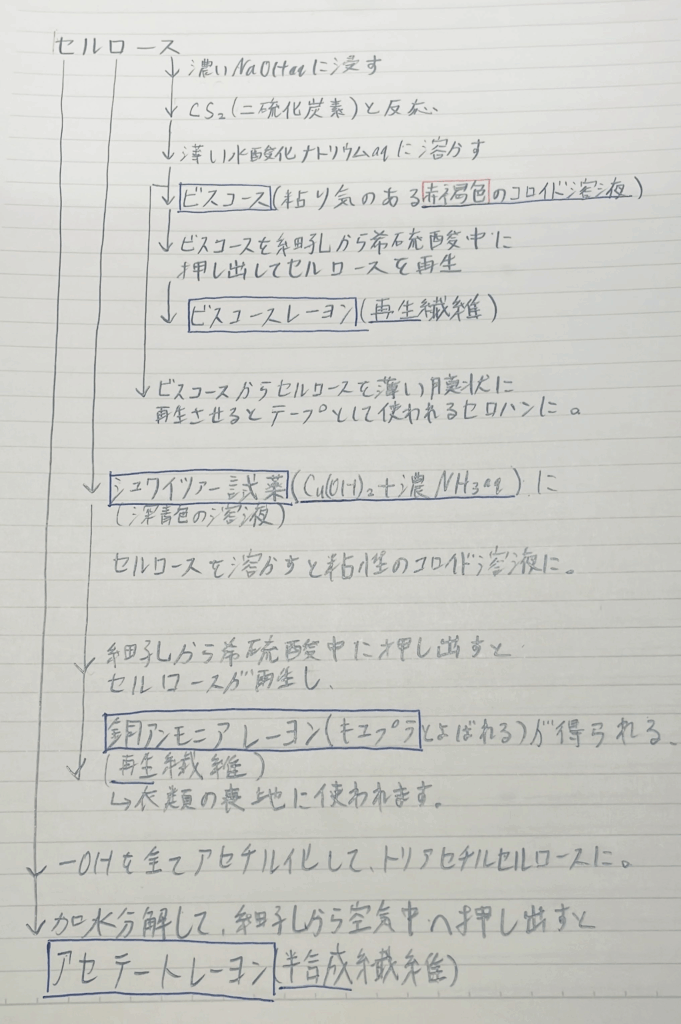 セルロース
濃いNaOHaqに浸す
CS2(二硫化炭素)と反応
薄い水酸化ナトリウムaqに溶かす
ビスコース(粘り気のある赤褐色のコロイド溶液)
ビスコースを細孔から希硫酸中に
押し出してセルロースを再生
ビスコースレーヨン(再生繊維)
ビスコースからセルロースを薄い膜状に
再生させるとテープとして使われるセロハンに。
シュワイツァー試薬(Cu(OH)2+濃NH3aq)に
(深青色の溶液)
セルロースを溶かすと粘性のコロイド溶液に。
細孔から希硫酸中に押し出すと
セルロースが再生し、
銅アンモニアレーヨン(キュプラとよばれる)が得られる、
(再生繊維)
↳衣類の裏地に使われます。
-OHを全てアセチル化して、トリアセチルセルロースに。
加水分解して、細孔から空気中へ押し出すと
アセテートレーヨン(半合成繊維)